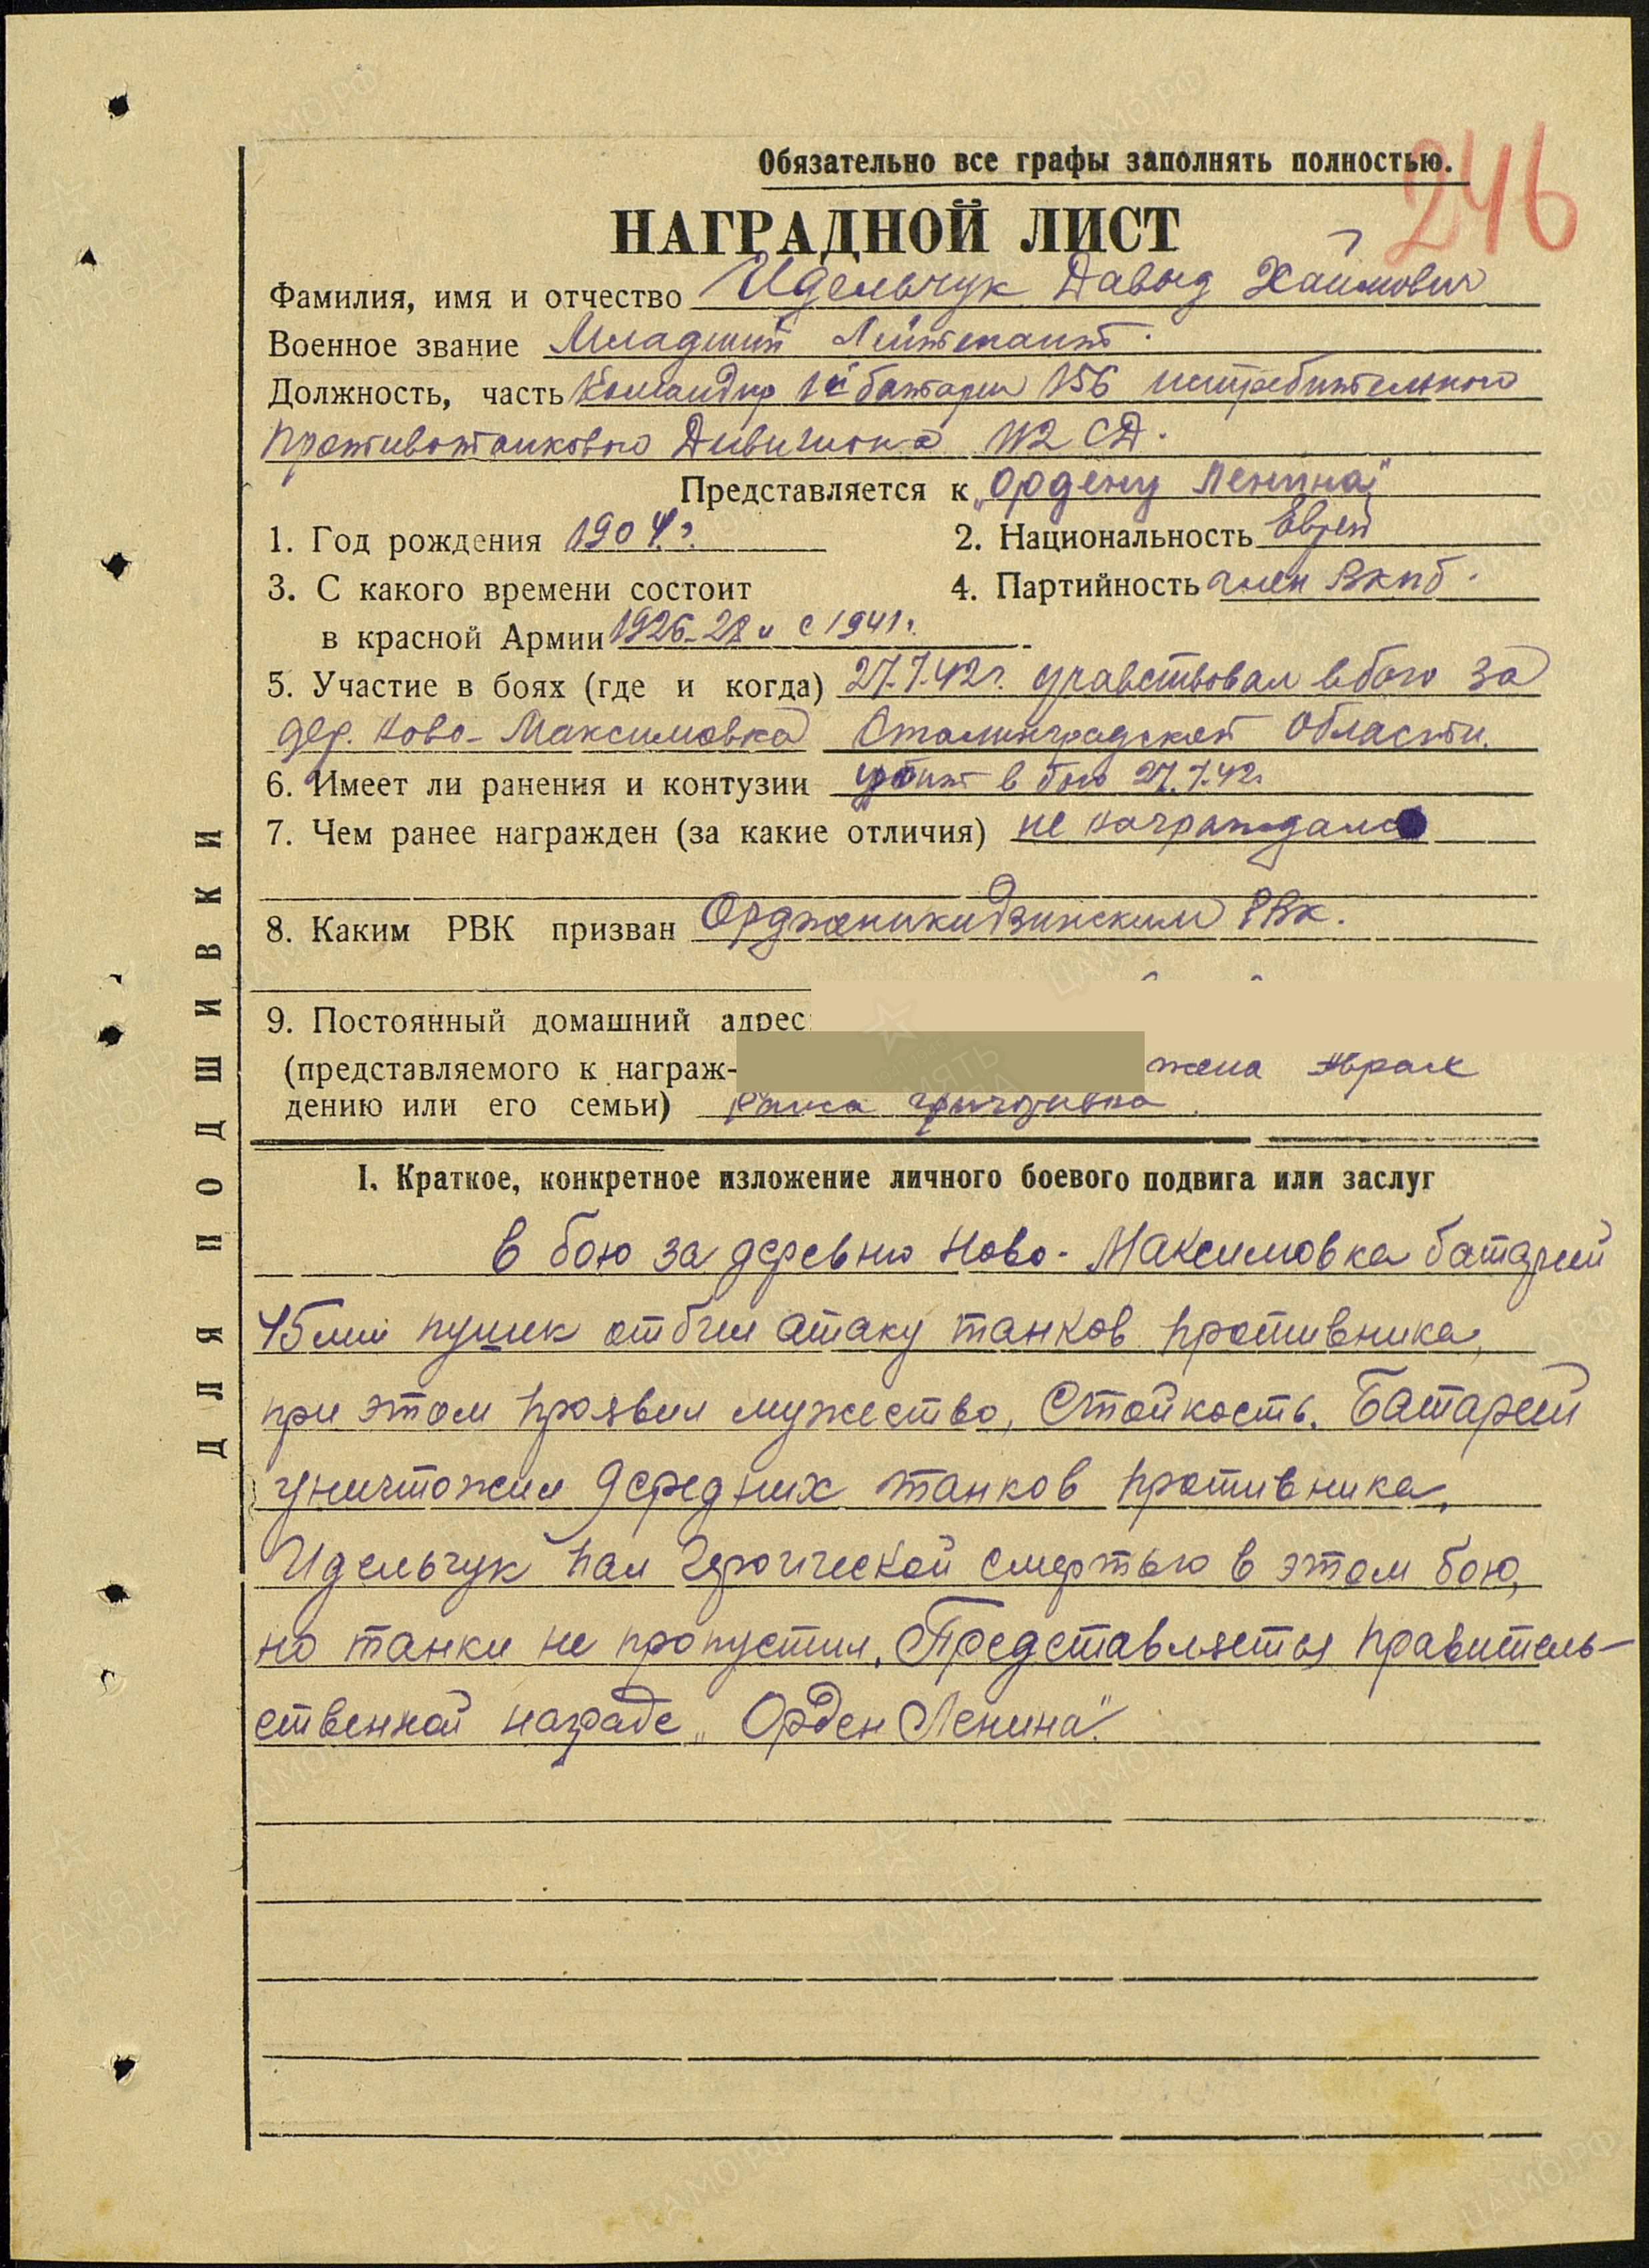 246
Обязательно все графы заполнять полностью.
НАГРАДНОЙ ЛИСТ
Фамилия, имя и отчество Идельчук Давыд Хаимович
Военное звание Младший Лейтенант.
Должность, часть Командир 1й батареи 156 истребительного
противотанкового Дивизиона 112 СД.
Представляется к „Ордену Ленина"
1. Год рождения 1904 г. 2. Национальность Еврей
3. С какого времени состоит 4. Партийность член ВКПб.
в красной Армии 1926-28 и с 1941 г.
5. Участие в боях (где и когда) 27.7.42 г. участвовал в бою за
дер. Ново-Максимовка Сталинградской области.
6. Имеет ли ранения и контузии убит в бою 27.7.42 г
7. Чем ранее награжден (за какие отличия) не награждался
8. Каким РВК призван Орджоникидзинским РВК.
9. Постоянный домашний адрес
(представляемого к награж- жена
дению или его семьи)
I. Краткое, конкретное изложение личного боевого подвига или заслуг
в бою за деревню Ново-Максимовка батареей
45 мм пушек отбил атаку танков противника,
при этом проявил мужество, стойкость. Батареей
уничтожил 9 средних танков противника.
Идельчук пал героической смертью в этом бою,
но танки не пропустил. Представляется правитель-
ственной награде „Орден Ленина".
ДЛЯ ПОДШИВКИ
ПАМЯТЬ НАРОДА
ЦАМО.РФ